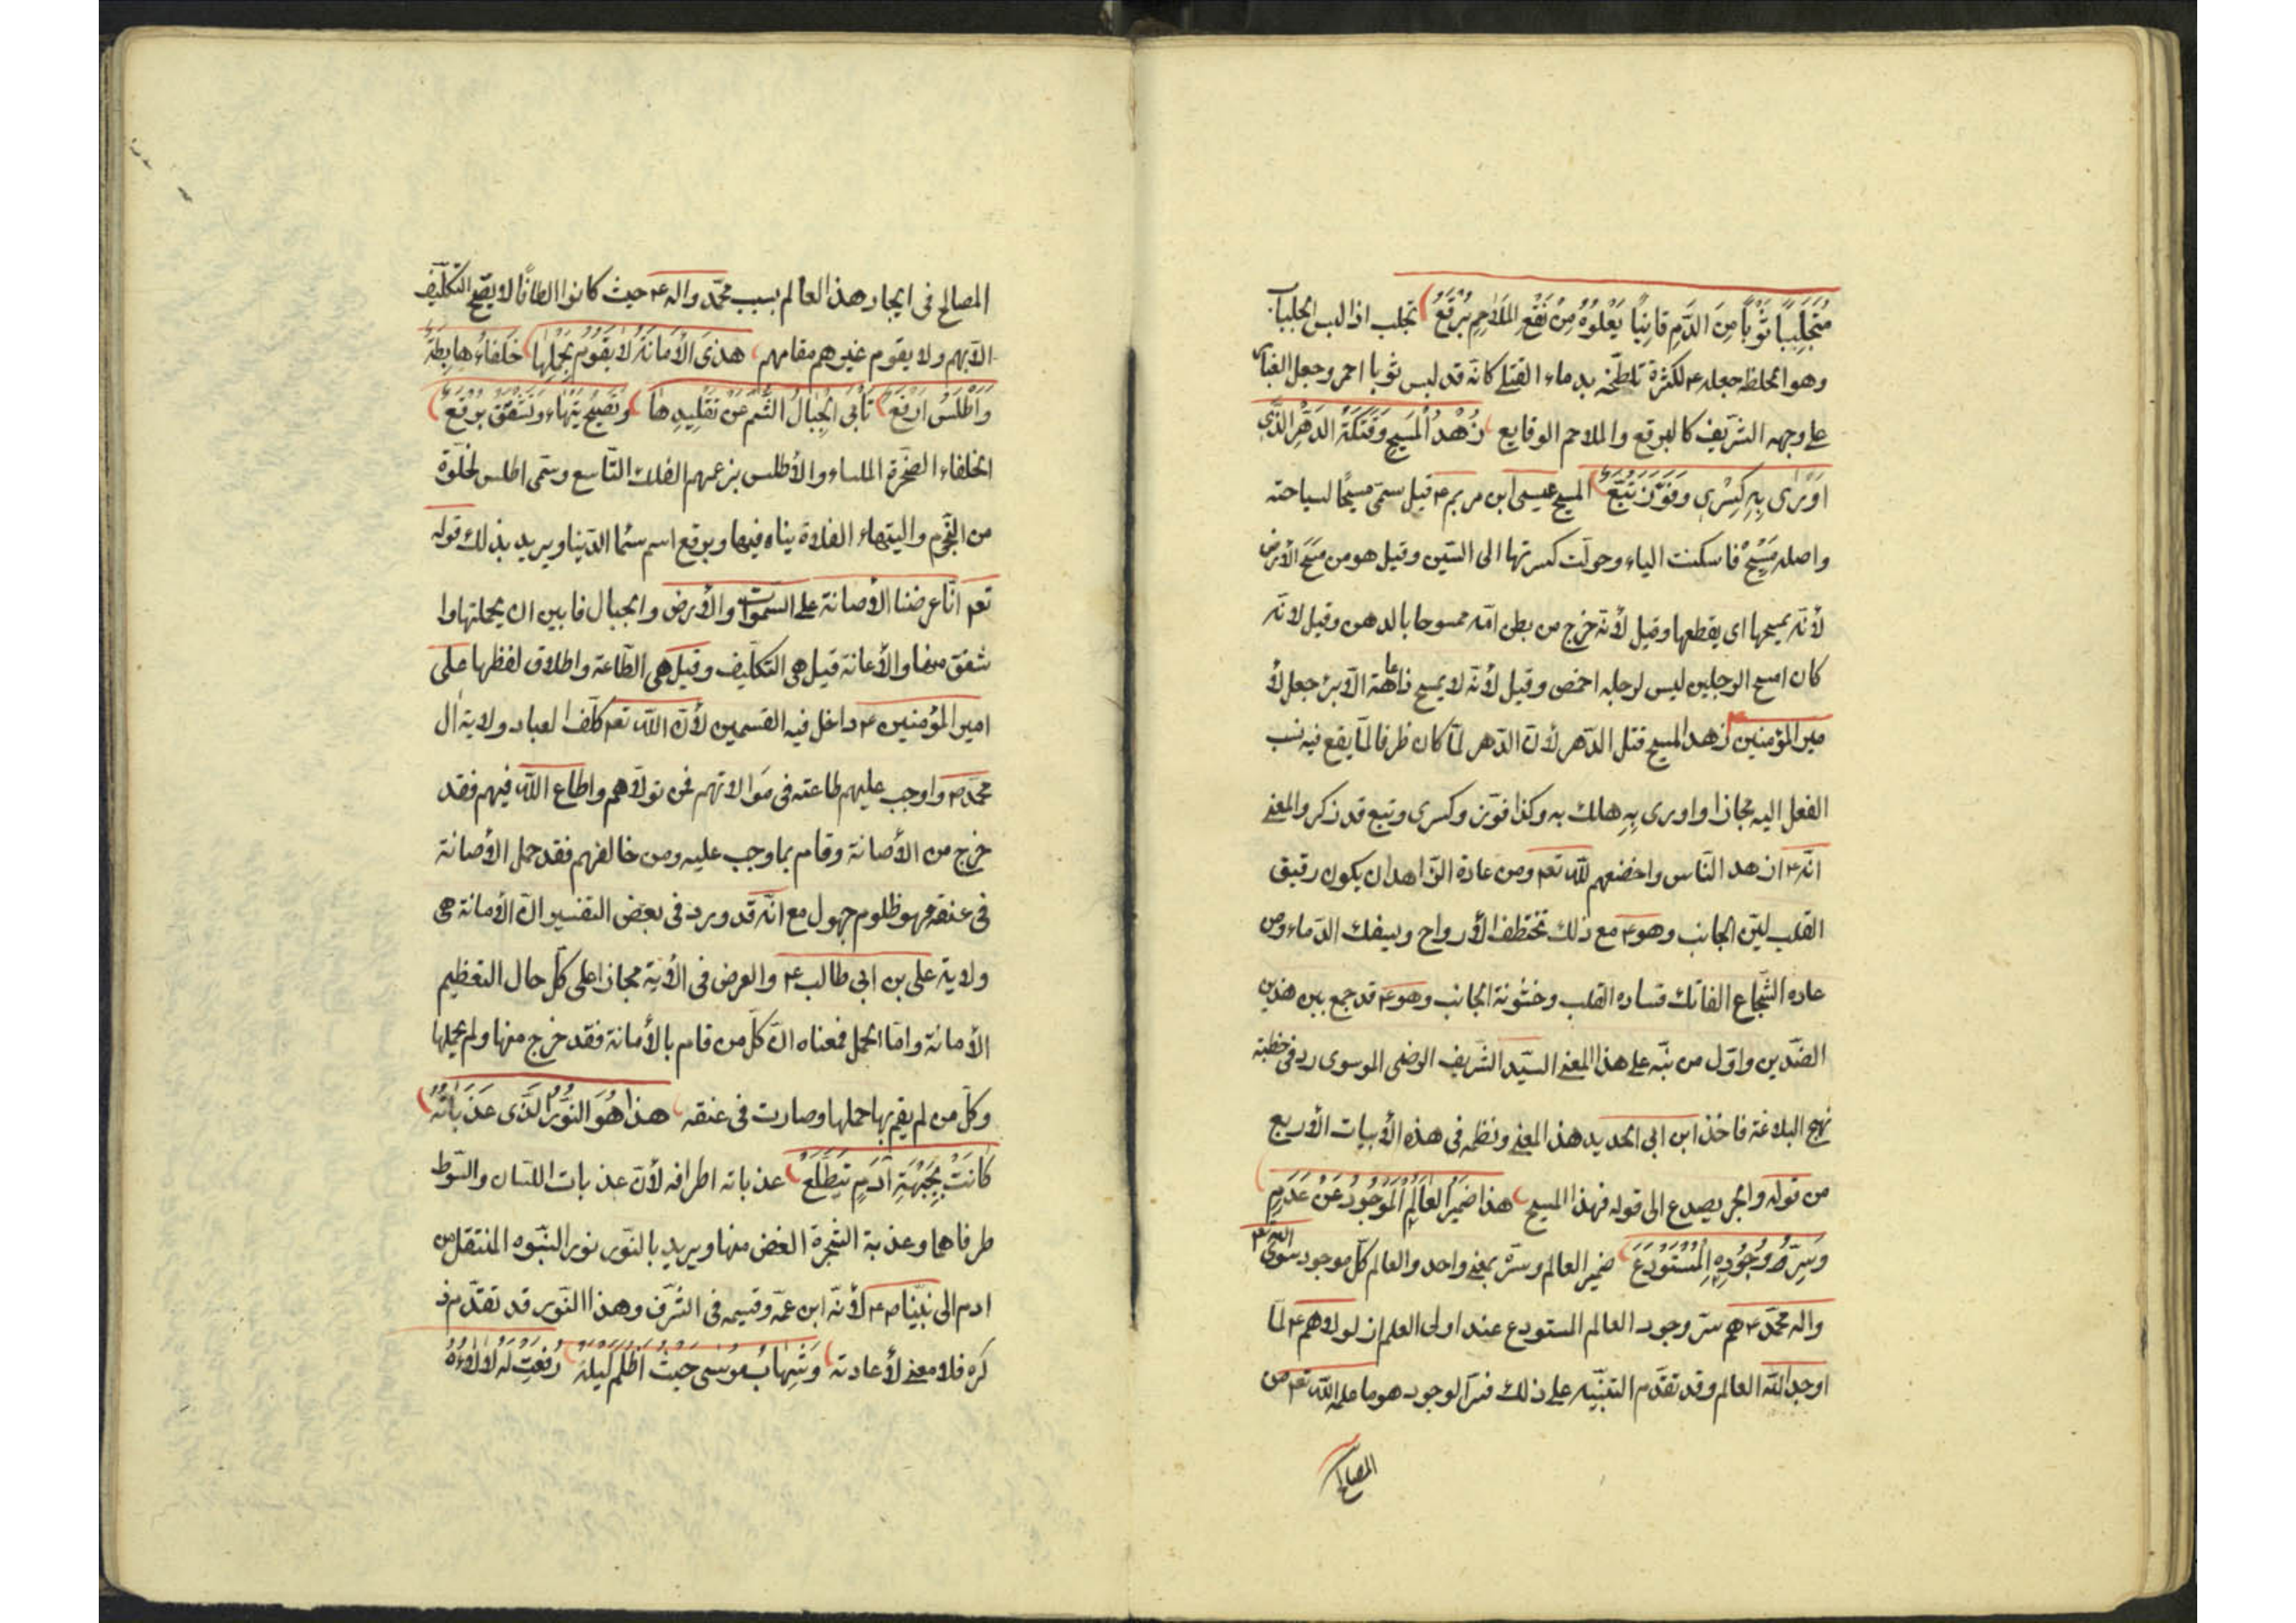 مُتَجَلْبِبًا ثَوْبًا مِنَ الدَّمِ قَانِيًا يَعْلُوهُ مِنْ نَقْعِ المَلَاحِمِ بُرْقَعُ تجلبب اذا لبس الجلباب
وهو الملحفة جعله ع لكثرة تلطخه بدماء القتلى كانه قد لبس ثوبا احمر وجعل الغبار
على وجهه الشريف كالبرقع والملاحم الوقايع زُهْدُ الْمَسِيحِ وَفَتْكَةُ الدَهْرِ الَّذِي
اَوْدَى بِهِ كِسْرى وَفَوَّزَ تُبَّعُ المسيح عيسى ابن مريم ع قيل سمى مسيحًا لسياحته
واصله مَسْيِحٌ فاسكنت الياء وحولت كسرتها الى السين وقيل هو من مَسَحَ الأرض
لأنه يمسحها اى يقطعها وقيل لأنه خرج من بطن امه ممسوحا بالدهن وقيل لانه
كان امسح الرجلين ليس لرجله اخمص وقيل لأنه لا يمسح ذا عاهة الا برئ جعل لأ
مير المؤمنين زهد المسيح قتل الدهر لأن الدهر لما كان ظرفا لما يقع فيه نسب
الفعل اليه مجازا واودى بِهِ هلك به وكذا فوّز وكسرى وتبع قد ذكر والمعنى
انه ع ازهد الناس واخضعهم لله تعه ومن عادة الزاهد ان يكون رقيق
القلب لين الجانب وهو ع مع ذلك تختطف الأرواح ويسفك الدماء ومن
عاده الشجاع الفاتك قساده القلب وخشونة الجانب وهو ع قد جمع بين هذين
الضدين واول من نبه على هذا المعنى السيد الشريف الرضى الموسوى ره فى خطبة
نهج البلاغة فاخذ ابن ابى الحديد هذا المعنى ونظمه فى هذه الأبيات الأربع
من قوله والحبر يصدع الى قوله فهذا المسيح هذا ضَمِيرُ العَالَمِ الْمَوْجُودُ عَنْ عَدَمٍ
وَسِرُّ وُجُودِهِ الْمُسْتَوْدَعُ ضمير العالم وسره بمعنى واحد والعالم كل موجود سوى الله تعه
واله محمد ع هم سر وجود العالم المستودع عند اولى العلم اذ لولاهم ع لما
اوجد الله العالم وقد تقدم التنبيه على ذلك فسر الوجود هو ما علمه الله تعه من
المصالح
المصالح فى ايجاد هذا العالم بسبب محمد واله ع حيث كانوا الطافًا لا يصح التكليف
الا بهم ولا يقوم غيرهم مقامهم هذى الأمَانَةُ لا يَقُومُ بِحَمْلِهَا خَلْقَاءُ هابِطَةٌ
وَاَطْلَسُ اَرْفَعُ تَأبَى الْجِبَالُ الشُّمُّ عَنْ تَقْلِيدِهَا وَتَضِجُّ تَيْهَاءٌ وَتَشْفَقُ بَرْقَعُ
الخلقاء الصخرة الملساء والأطلس بزعمهم الفلك التاسع وسمى اطلس لخلوة
من النجوم واليتهاء الفلاة يتاه فيها وبرقع اسم سما الدنيا ويريد بذلك قوله
تعه انا عرضنا الأمانة على السموات والأرض والجبال فابين ان يحملنها وا
شفقن منها والأمانة قيل هى التكليف وقيل هى الطاعة واطلاق لفظها على
امير المؤمنين ع داخل فيه القسمين لأن الله تعه كلف العباد ولاية ال
محمد ص واوجب عليهم طاعته فى موالاتهم فمن تولاهم واطاع الله فيهم فقد
خرج من الأمانة وقام بما وجب عليه ومن خالفهم فقد حمل الأمانة
فى عنقه فهو ظلوم جهول مع انه قد ورد فى بعض التفسير ان الأمانة هى
ولاية على بن ابى طالب ع والعرض فى الأية مجاز اعلى كل حال التعظيم
الأمانة واما الحمل فمعناه ان كل من قام بالأمانة فقد خرج منها ولم يحملها
وكل من لم يقم بها حملها وصارت فى عنقه هذا هُوَ النُّورُ الَّذى عَذَبَاتُهُ
كَانَتْ بِجَبْهَةِ آدَمٍ تَتَطَلَّعُ عذباته اطرافه لأن عذبات اللسان والسوط
طرفاهما وعذبة الشجرة الغصن منها ويريد بالنور نور النبوه المنتقل من
ادم الى نبينا ص ع لأنه ابن عمه وقسيمه فى الشرف وهذا النور قد تقدم ذ
كره فلا معنى لأعادته وَشِهَابُ مُوسى حَيْثُ اَظْلَمَ لَيْلَهُ رُفِعَتْ لَهُ لَأْلَاؤُهُ